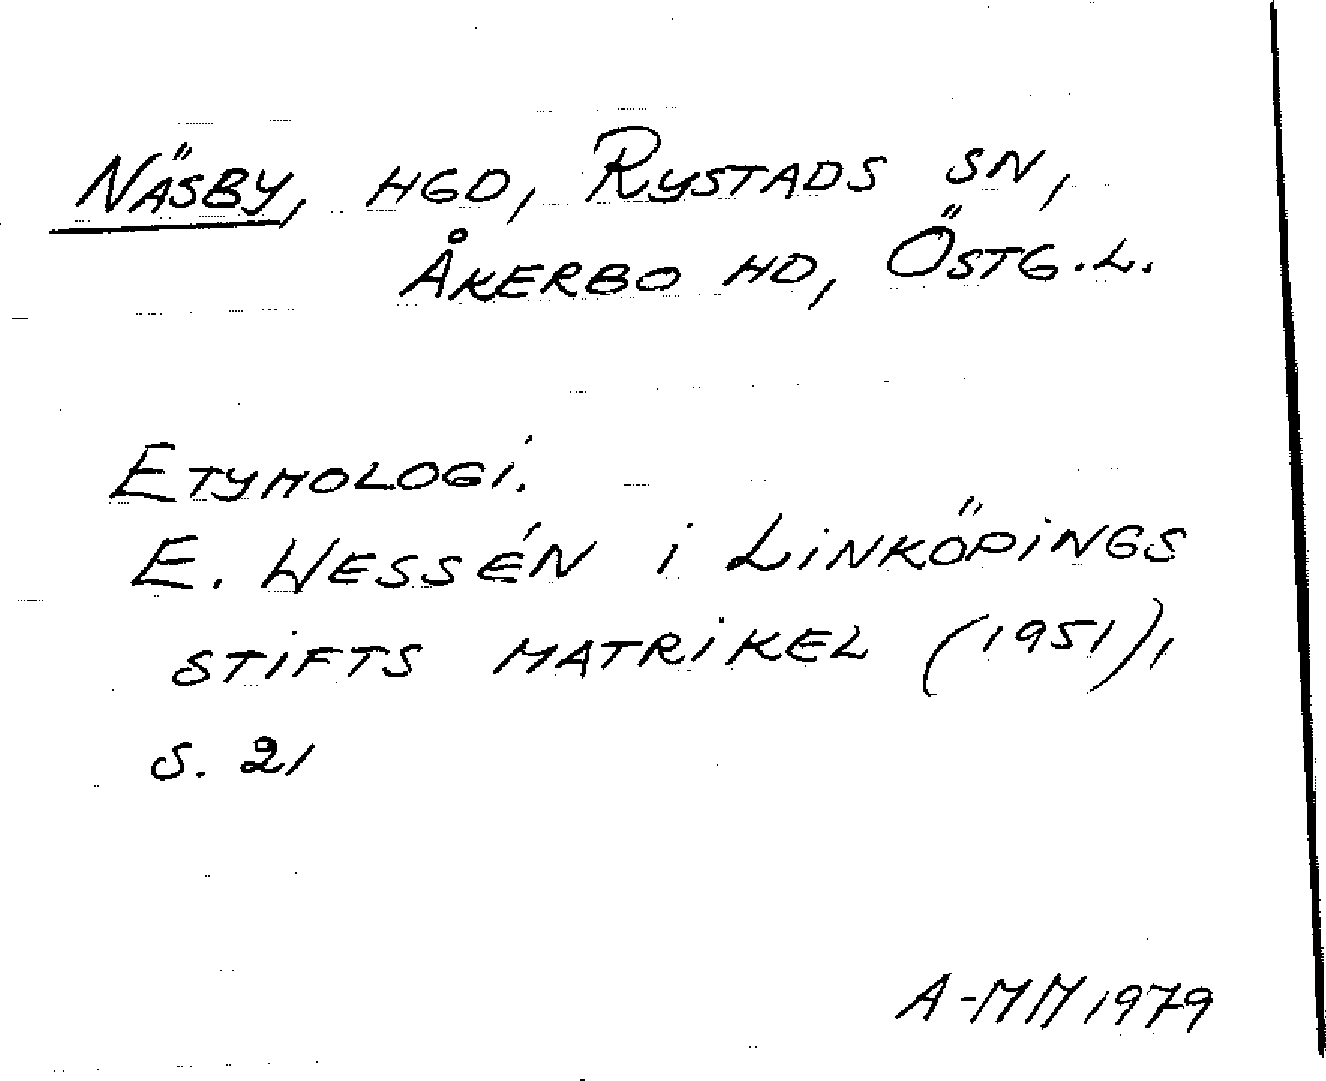 NÄSBY, HGD, RYSTADS SN,
ÅKERBO HD, ÖSTG.L.
ETYMOLOGI.
E. WESSÉN i LINKÖPINGS
STIFTS MATRIKEL (1951),
S. 21
A-MM 1979